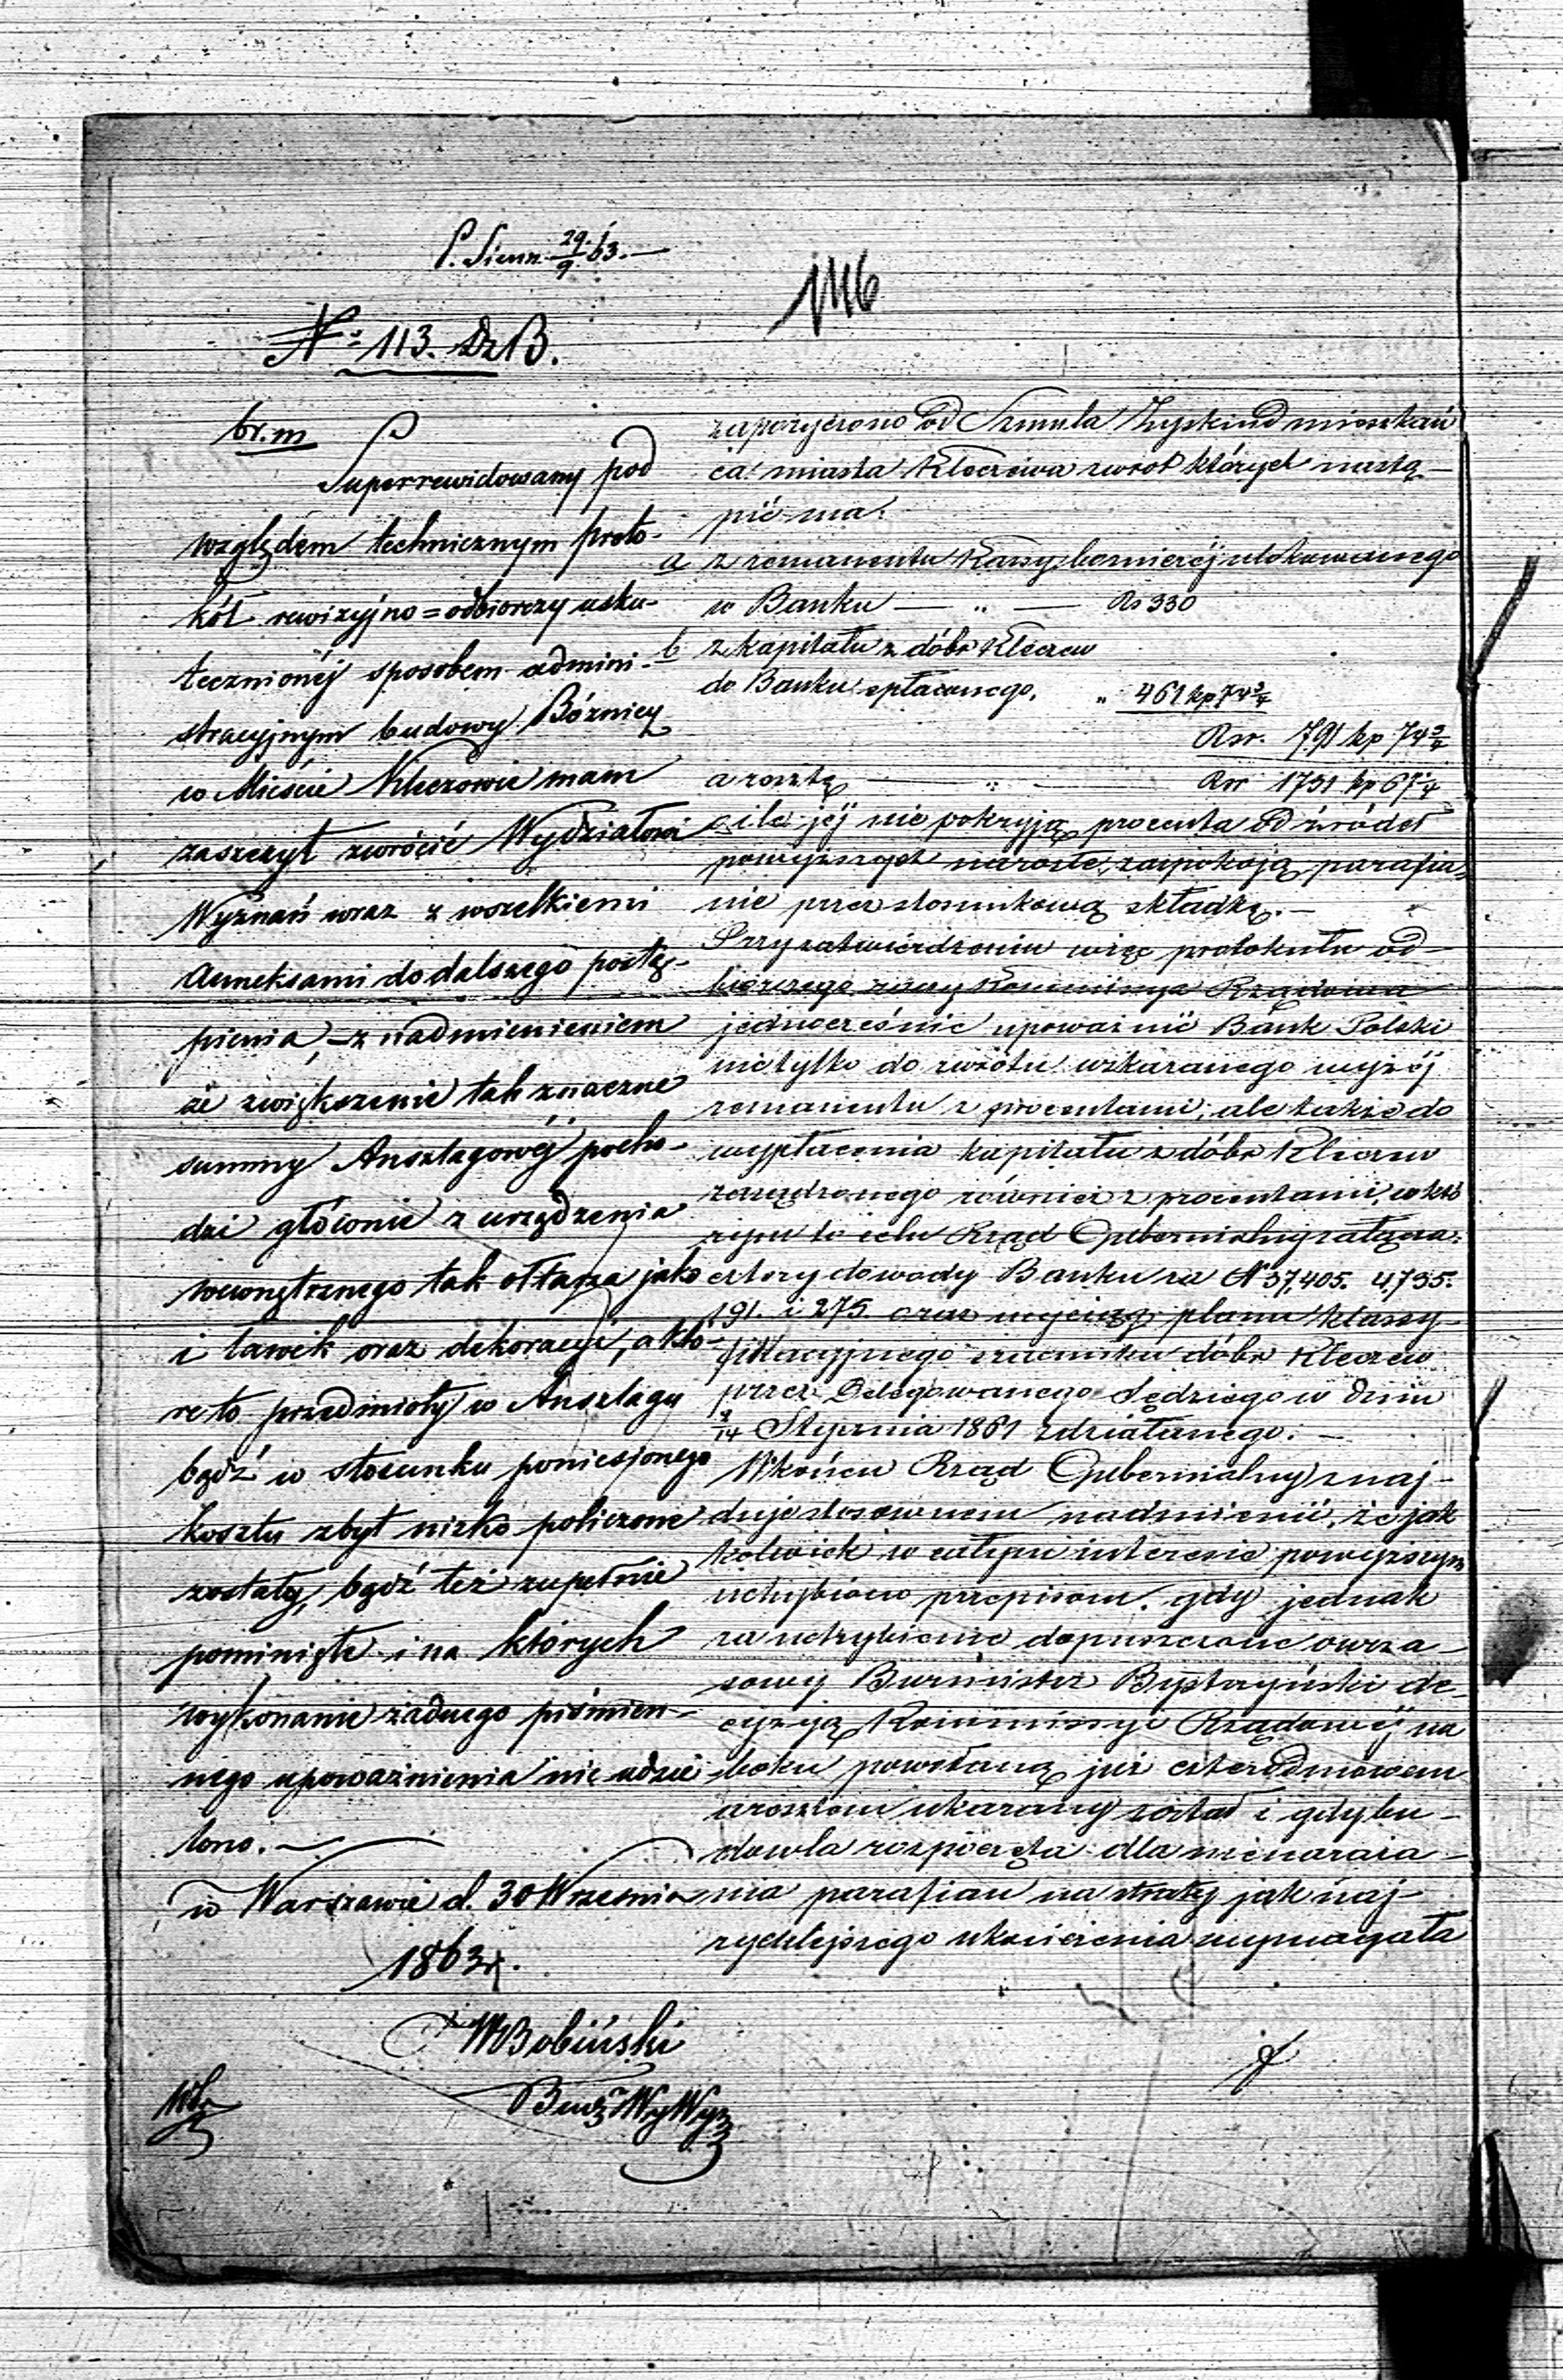 P. Sienn. 29/9 63.—
146
N° 113. Dz B.
br. m
Superrewidowany pod
względem technicznym proto-
kół rewizyjno=odbiorczy usku-
tecznionéj sposobem admini-
stracyjnym budowy Bóżnicy
w Mieście Kleczewie mam
zaszczyt zwrócić Wydziałowi
Wyznań wraz z wszelkiemi
Anneksami do dalszego postę-
pienia, – z nadmienieniem
że zwiększenie tak znaczne
summy Anszlagowéj pocho-
dzi głównie z urządzenia
wewnętrznego tak ołtarza jako
i ławek oraz dekoracyi, a któ-
re to przedmioty w Anszlagu
bądź w stosunku poniesionego
kosztu zbyt nizko policzone
zostały, bądź też zupełnie
pominięte i na których
wykonanie żadnego piśmien-
nego upoważnienia nie udzie
lono. —
w Warszawie d. 30 Września
1863 r.
WBobiński
Bud WyWyz
zapożyczono od Szmula Zyskind mieszkań
ca miasta Kleczewa zwrot których nastą-
pić ma:
a z remanentu Kassy bożniczéj ulokowanego
w Banku — „ — Rs 330
b z kapitału z dóbr Kleczew
do Banku spłaconego, „ 461 kp 74 3/4
Rsr. 791 kp 74 3/4
a resztę — „ — Rsr 1731 kp 67 1/4
o ile jéj nie pokryją procenta od źródeł
powyższych narosłe, zaspokoją parafia-
nie przez stosunkową składkę. —
Przy zatwierdzeniu więc protokułu od-
biorczego raczy Kommissya Rządowa
jednocześnie upoważnić Bank Polski
nietylko do zwrotu wskazanego wyżéj
remanentu z procentami, ale także do
wypłacenia kapitału z dóbr Kleczew
zasądzonego również z procentami, w któ
rym to celu Rząd Gubernialny załącza:
cztery dowody Banku za N 37,405. 4,735.
191. i 275. oraz wyciąg planu klassy-
fikacyjnego szacunku dóbr Kleczew
przez Delegowanego Sędziego w dniu
2/14 Stycznia 1861 zdziałanego. —
Wkońcu Rząd Gubernialny znaj-
duje stosownem nadmienić, że jak
kolwiek w całym interesie powyższym
uchybiono przepisom, gdy jednak
za uchybienie dopuszczone ówcza-
sowy Burmistrz Bystrzyński de-
cyzyą Kommissyi Rządowéj na
boku powołaną już czterodniowem
aresztem ukarany został i gdy bu-
dowla rozpoczęta dla nienaraża-
nia parafian na straty jak naj-
rychlejszego ukończenia wymagała